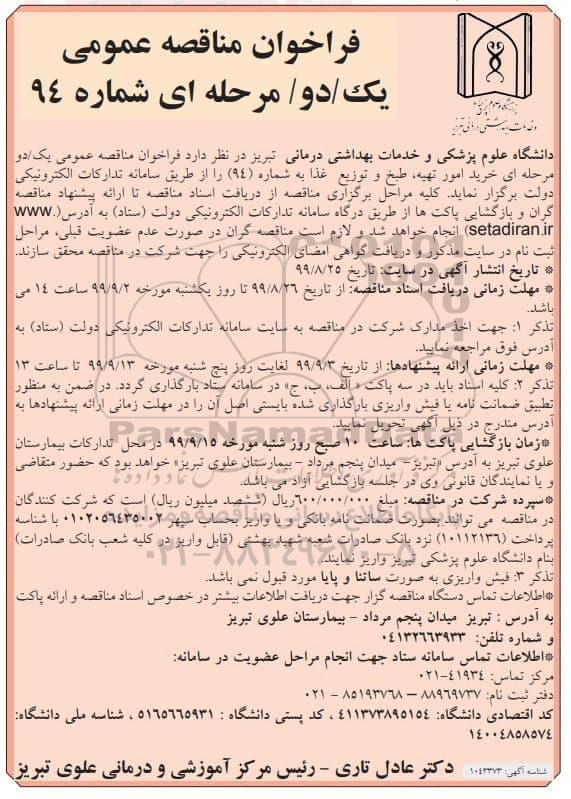 فراخوان مناقصه عمومی
یک/دو/ مرحله ای شماره ۹۴
دانشگاه علوم پزشکی
و خدمات بهداشتی درمانی تبریز
دانشگاه علوم پزشکی و خدمات بهداشتی درمانی تبریز در نظر دارد فراخوان مناقصه عمومی یک/دو
مرحله ای خرید امور تهیه، طبخ و توزیع غذا به شماره (۹۴) را از طریق سامانه تدارکات الکترونیکی
دولت برگزار نماید. کلیه مراحل برگزاری مناقصه از دریافت اسناد مناقصه تا ارائه پیشنهاد مناقصه
گران و بازگشایی پاکت ها از طریق درگاه سامانه تدارکات الکترونیکی دولت (ستاد) به آدرس(.www
setadiran.ir) انجام خواهد شد و لازم است مناقصه گران در صورت عدم عضویت قبلی، مراحل
ثبت نام در سایت مذکور و دریافت گواهی امضای الکترونیکی را جهت شرکت در مناقصه محقق سازند.
* تاریخ انتشار آگهی در سایت: تاریخ ۹۹/۸/۲۵
* مهلت زمانی دریافت اسناد مناقصه: از تاریخ ۹۹/۸/۲۶ تا روز یکشنبه مورخه ۹۹/۹/۲ ساعت ۱۴ می
باشد.
تذکر ۱: جهت اخذ مدارک شرکت در مناقصه به سایت سامانه تدارکات الکترونیکی دولت (ستاد) به
آدرس فوق مراجعه نمایید.
* مهلت زمانی ارائه پیشنهادها: از تاریخ ۹۹/۹/۳ لغایت روز پنج شنبه مورخه ۹۹/۹/۱۳ تا ساعت ۱۳
تذکر ۲: کلیه اسناد باید در سه پاکت « الف، ب، ج» در سامانه ستاد بارگذاری گردد. در ضمن به منظور
تطبیق ضمانت نامه یا فیش واریزی بارگذاری شده بایستی اصل آن را در مهلت زمانی ارائه پیشنهادها به
آدرس مندرج در ذیل آگهی تحویل نمایید.
*زمان بازگشایی پاکت ها: ساعت ۱۰ صبح روز شنبه مورخه ۹۹/۹/۱۵ در محل تدارکات بیمارستان
علوی تبریز به آدرس «تبریز- میدان پنجم مرداد - بیمارستان علوی تبریز» خواهد بود که حضور متقاضی
و یا نمایندگان قانونی وی در جلسه بازگشایی آزاد می‌باشد.
*سپرده شرکت در مناقصه: مبلغ ۶۰۰/۰۰۰/۰۰۰ریال (ششصد میلیون ریال) است که شرکت کنندگان
در مناقصه می توانند بصورت ضمانت نامه بانکی و یا واریز بحساب سپهر ۰۱۰۲۰۵۶۴۳۵۰۰۲ با شناسه
پرداخت (۱۰۱۱۲۱۳۶) نزد بانک صادرات شعبه شهید بهشتی (قابل واریز در کلیه شعب بانک صادرات)
بنام دانشگاه علوم پزشکی تبریز واریز نمایند.
تذکر ۳: فیش واریزی به صورت ساتنا و پایا مورد قبول نمی باشد.
*اطلاعات تماس دستگاه مناقصه گزار جهت دریافت اطلاعات بیشتر در خصوص اسناد مناقصه و ارائه پاکت
به آدرس : تبریز میدان پنجم مرداد - بیمارستان علوی تبریز
و شماره تلفن: ۰۴۱۳۲۶۶۳۹۳۳
*اطلاعات تماس سامانه ستاد جهت انجام مراحل عضویت در سامانه:
مرکز تماس: ۴۱۹۳۴-۰۲۱
دفتر ثبت نام: ۸۸۹۶۹۷۳۷ – ۸۵۱۹۳۷۶۸ - ۰۲۱
کد اقتصادی دانشگاه: ۴۱۱۳۷۳۸۹۵۱۵۴ ، کد پستی دانشگاه : ۵۱۶۵۶۶۵۹۳۱ ، شناسه ملی دانشگاه:
۱۴۰۰۴۸۵۸۵۷۴
شناسه آگهی: ۱۰۴۳۳۷۳
دکتر عادل تاری - رئیس مرکز آموزشی و درمانی علوی تبریز
ParsNamadData
۰۲۱-۸۸۳۴۹۶۷۰-۵